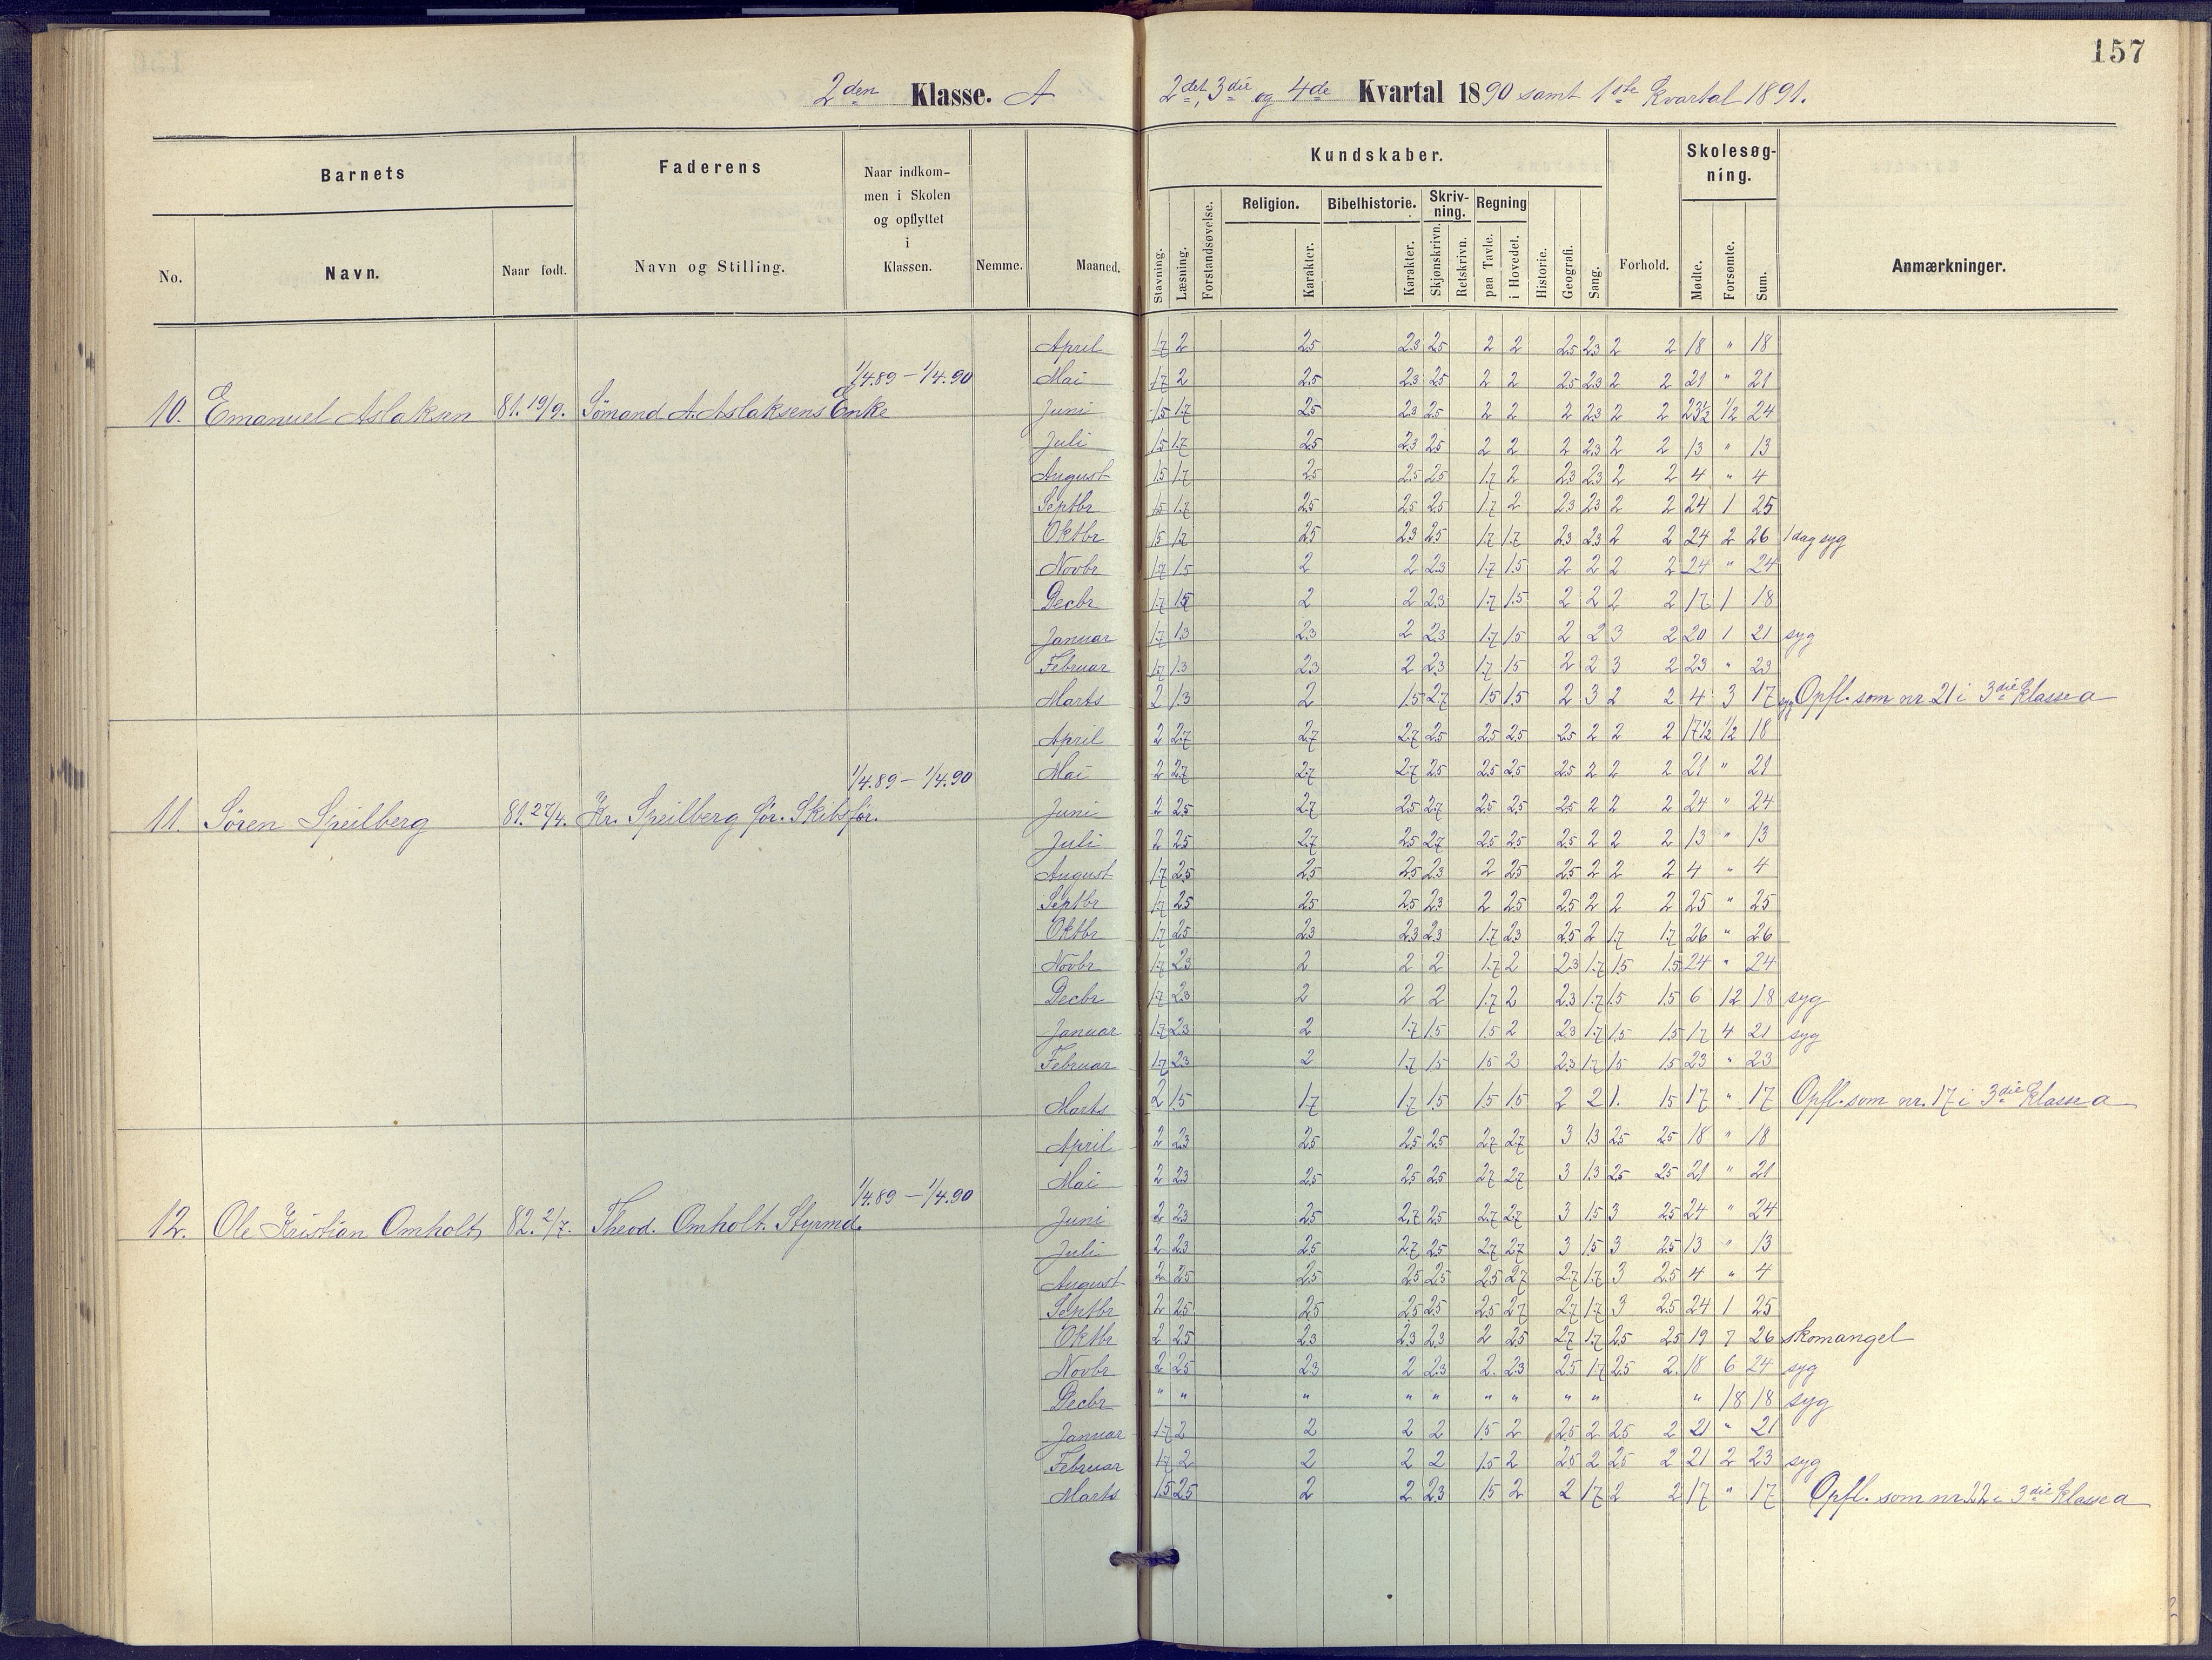 157
2den Klasse. A
2det, 3die og 4de Kvartal 1890 samt 1ste Kvartal 1891.
Barnets
Faderens
Naar indkommen i Skolen og opflyttet i Klassen.
Kundskaber.
Skolesøgning.
No.
Navn.
Naar født.
Navn og Stilling.
Nemme.
Maaned.
Stavning.
Læsning.
Forstandsøvelse.
Religion.
Karakter.
Bibelhistorie.
Karakter.
Skrivning.
Skjønskrivn.
Retskrivn.
Regning
paa Tavle.
i Hovedet.
Historie.
Geografi.
Sang.
Forhold.
Mødte.
Forsømte.
Sum.
Anmærkninger.
10. Emanuel Aslaksen 81. 19/9. Sømand A. Aslaksens Enke 1/4.89 - 1/4.90
April 1.7 2 2.5 2.3 2.5 2 2 2.5 2.3 2 2 18 " 18
Mai 1.7 2 2.5 2.3 2.5 2 2 2.5 2.3 2 2 21 " 21
Juni 1.5 1.7 2.5 2.3 2.5 2 2 2 2.3 2 2 23½ ½ 24
Juli 1.5 1.7 2.5 2.3 2.5 2 2 2 2.3 2 2 13 " 13
August 1.5 1.7 2.5 2.5 2.5 1.7 2 2.3 2.3 2 2 4 " 4
Septbr 1.5 1.7 2.5 2.5 2.5 1.7 2 2.3 2.3 2 2 24 1 25
Oktbr 1.5 1.7 2.5 2.3 2.5 1.7 1.7 2.3 2.3 2 2 24 2 26 1 dag syg
Novbr 1.7 1.5 2 2 2.3 1.7 1.5 2 2 2 2 24 " 24
Decbr 1.7 1.5 2 2 2.3 1.7 1.5 2 2 2 2 17 1 18
Januar 1.7 1.3 2.3 2 2.3 1.7 1.5 2 2 3 2 20 1 21 syg
Februar 1.7 1.3 2.3 2 2.3 1.7 1.5 2 2 3 2 23 " 23
Marts 2 1.3 2 1.5 2.7 1.5 1.5 2 3 2 2 4 3 17 syg Opfl. som nr. 21 i 3die Klasse a
11. Søren Speilberg 81. 27/4. Kr. Speilberg før. Skibsfør. 1/4.89 - 1/4.90
April 2 2.7 2.7 2.7 2.5 2.5 2.5 2.5 2 2 2 17½ ½ 18
Mai 2 2.7 2.7 2.7 2.5 2.5 2.5 2.5 2 2 2 21 " 21
Juni 2 2.5 2.7 2.5 2.7 2.5 2.5 2.5 2 2 2 24 " 24
Juli 2 2.5 2.7 2.5 2.7 2.5 2.5 2.5 2 2 2 13 " 13
August 1.7 2.5 2.5 2.5 2.3 2 2.5 2.5 2 2 2 4 " 4
Septbr 1.7 2.5 2.5 2.5 2.3 2 2.5 2.5 2 2 2 25 " 25
Oktbr 1.7 2.5 2.3 2.3 2.3 1.7 2.3 2.5 2 1.7 1.7 26 " 26
Novbr 1.7 2.3 2 2 2 1.7 2 2.3 1.7 1.5 1.5 24 " 24
Decbr 1.7 2.3 2 2 2 1.7 2 2.3 1.7 1.5 1.5 6 12 18 syg
Januar 1.7 2.3 2 1.7 1.5 1.5 2 2.3 1.7 1.5 1.5 17 4 21 syg
Februar 1.7 2.3 2 1.7 1.5 1.5 2 2.3 1.7 1.5 1.5 23 " 23
Marts 2 1.5 1.7 1.7 1.5 1.5 1.5 2 2 1. 1.5 17 " 17 Opfl. som nr. 17 i 3die Klasse a
12. Ole Kristian Omholt 82. 2/7. Theod. Omholt. Styrmd. 1/4.89 - 1/4.90
April 2 2.3 2.5 2.5 2.5 2.7 2.7 3 1.3 2.5 2.5 18 " 18
Mai 2 2.3 2.5 2.5 2.5 2.7 2.7 3 1.3 2.5 2.5 21 " 21
Juni 2 2.3 2.5 2.7 2.5 2.7 2.7 3 1.5 3 2.5 24 " 24
Juli 2 2.3 2.5 2.7 2.5 2.7 2.7 3 1.5 3 2.5 13 " 13
August 2 2.5 2.5 2.5 2.5 2.5 2.7 2.7 1.7 3 2.5 4 " 4
Septbr 2 2.5 2.5 2.5 2.5 2.5 2.7 2.7 1.7 3 2.5 24 1 25
Oktbr 2 2.5 2.3 2.3 2.3 2 2.5 2.7 1.7 2.5 2.5 19 7 26 skomangel
Novbr 2 2.5 2.3 2 2.3 2. 2.3 2.5 1.7 2.5 2. 18 6 24 syg
Decbr " " " " " " " " " " 18 18 syg
Januar 1.7 2 2 2 2 1.5 2 2.5 2 2.5 2 21 " 21
Februar 1.7 2 2 2 2 1.5 2 2.5 2 2.5 2 21 2 23 syg
Marts 1.5 2.5 2 2 2.3 1.5 2 2 1.7 2 2 17 " 17 Opfl. som nr 22 i 3die Klasse a